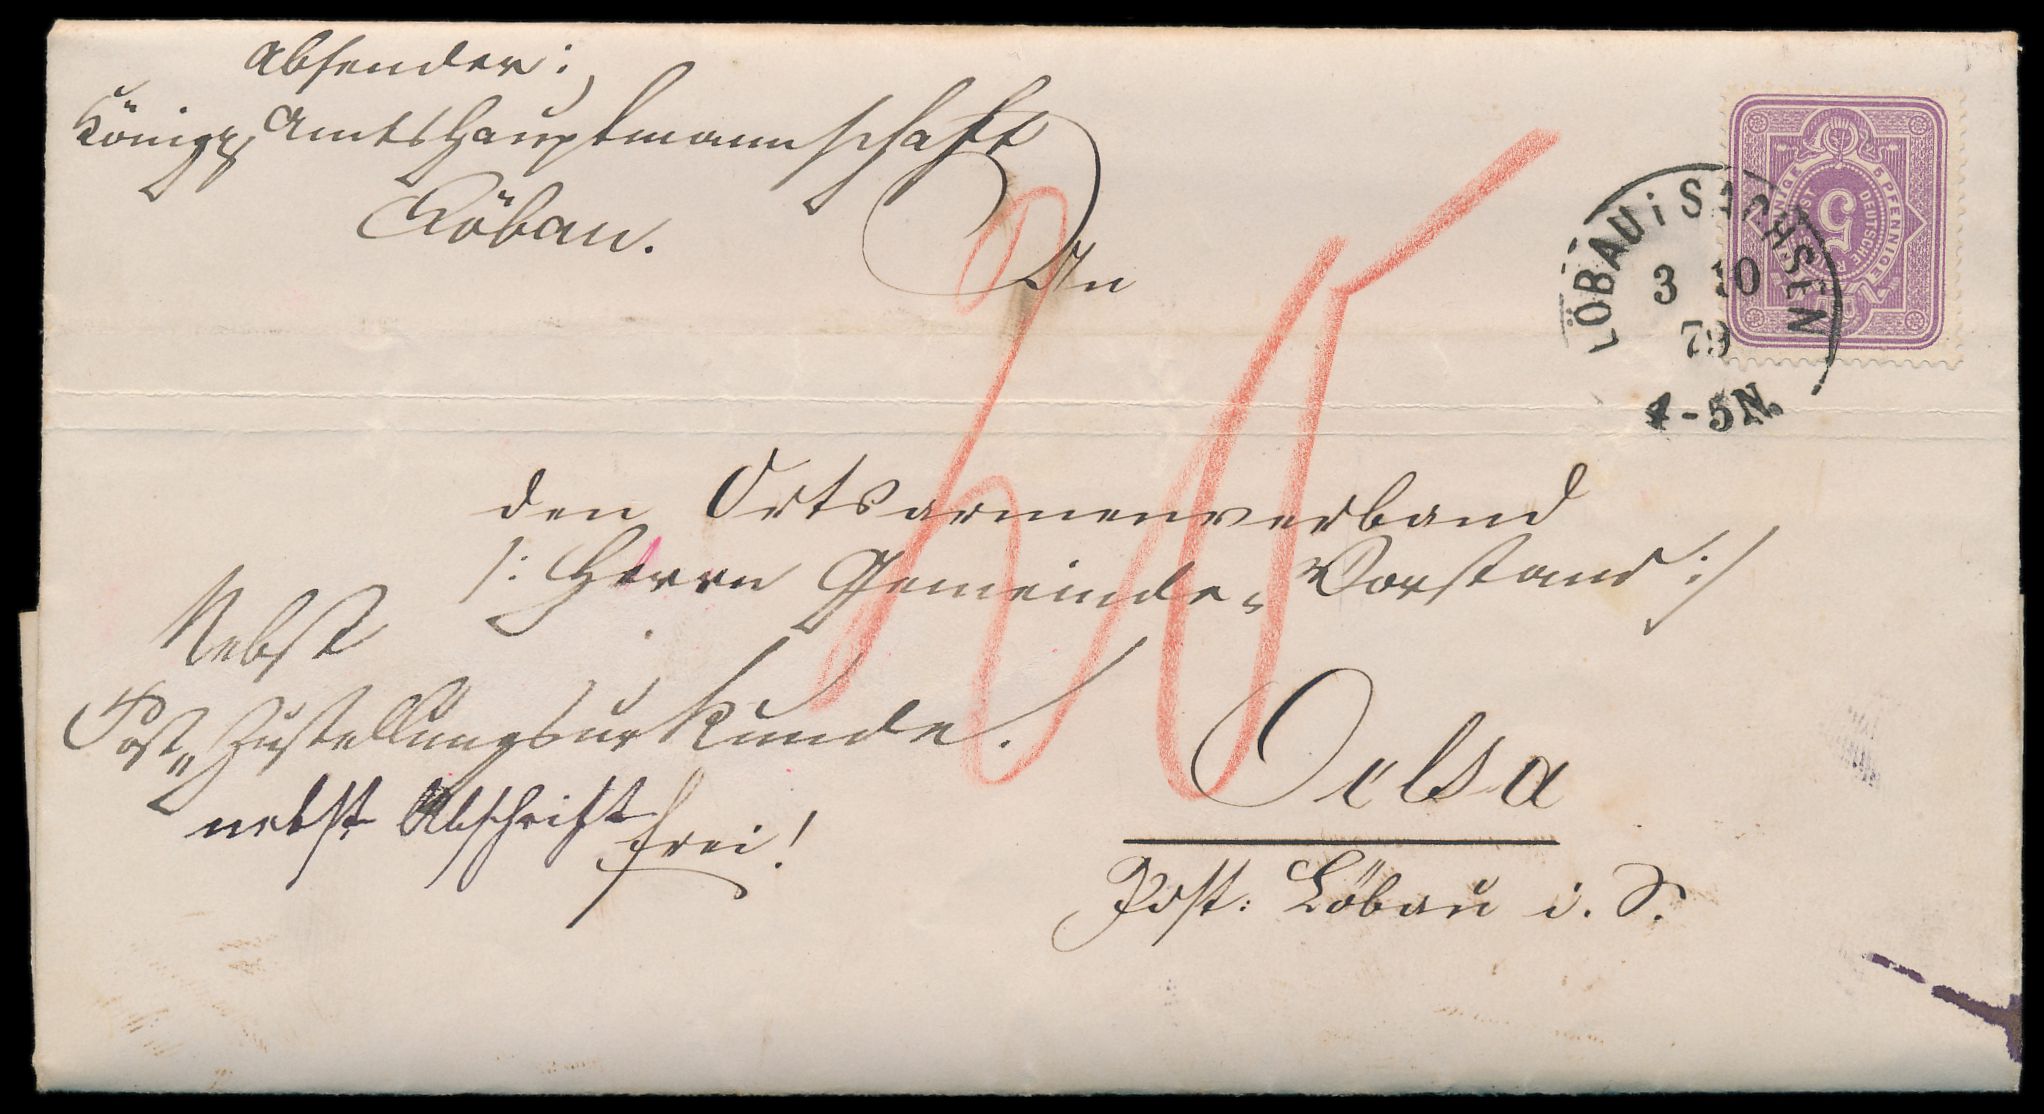 Absender:
Königl. Amtshauptmannschaft
Löbau.
An
den Ortsarmenverband
/: Herrn Gemeinde-Vorstand :/
Nebst
Post-Zustellungsurkunde.
nebst Abschrift
frei!
Oelsa
Post: Löbau i. S.
LÖBAU i SACHSEN
3 10
79
4-5N.
5 PFENNIGE
DEUTSCHE
5